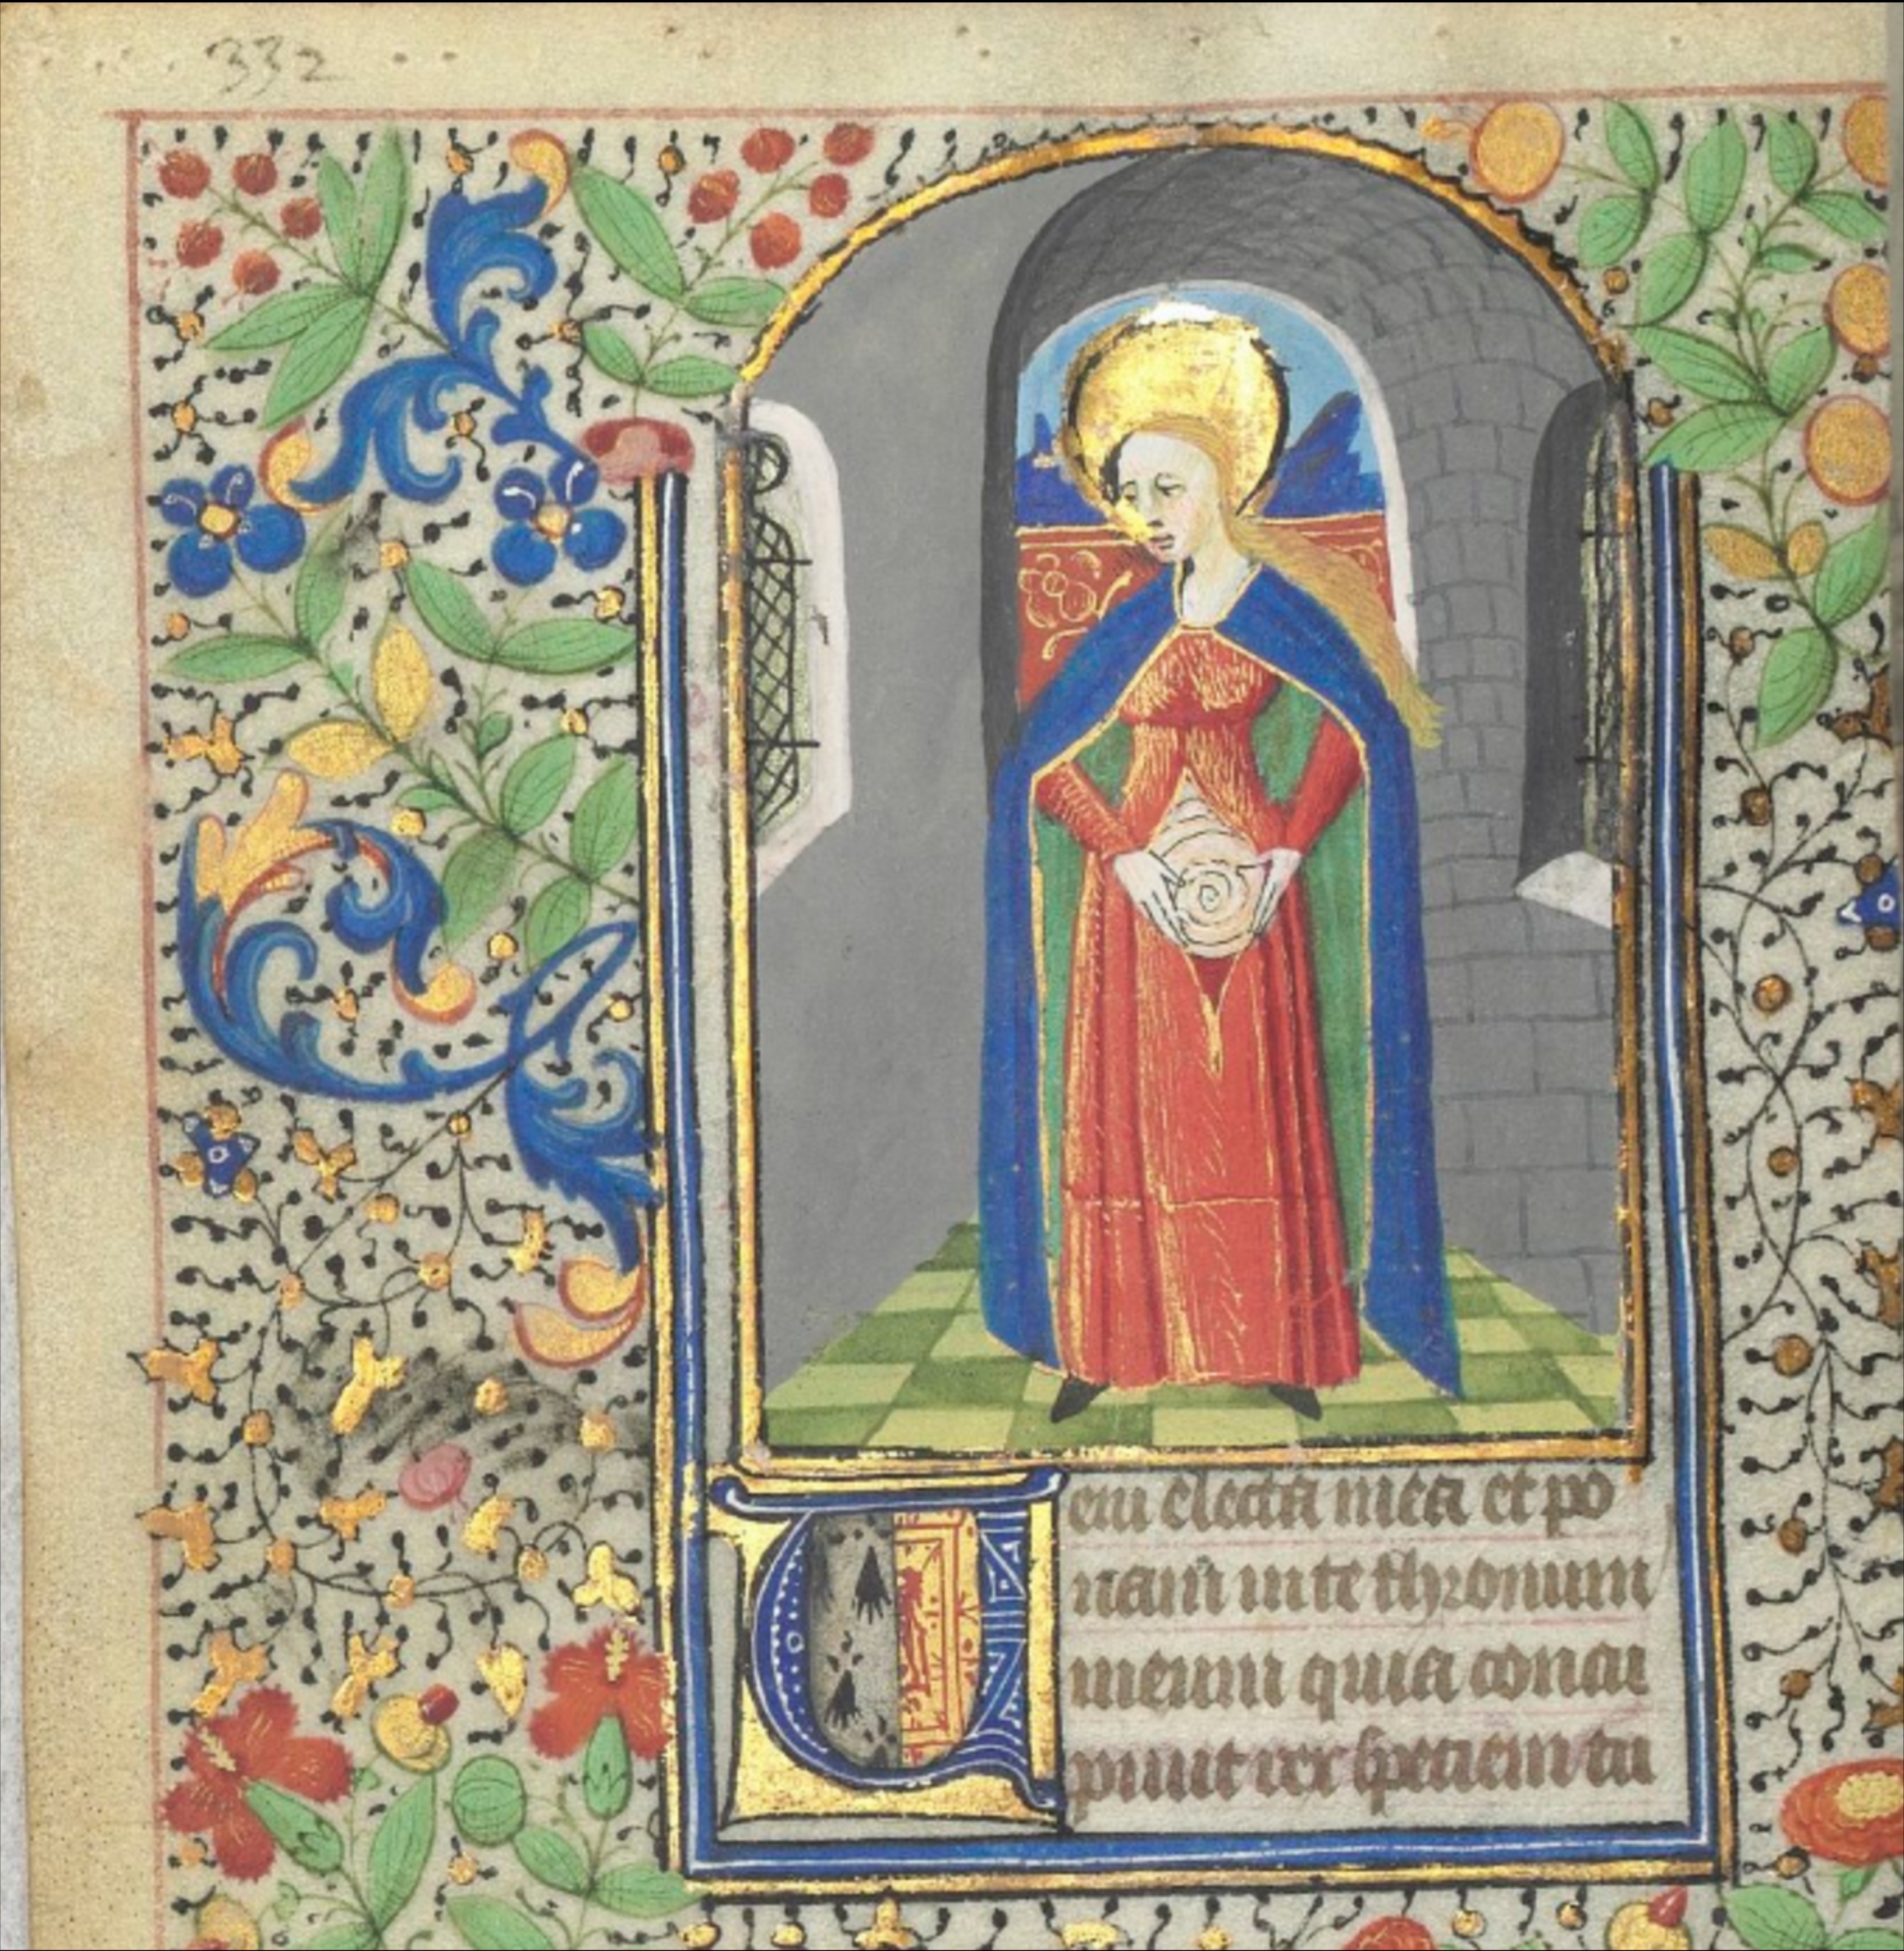 332
Ueni electa mea et po
nam in te thronum
meum quia concu
piuit rex speciem tu